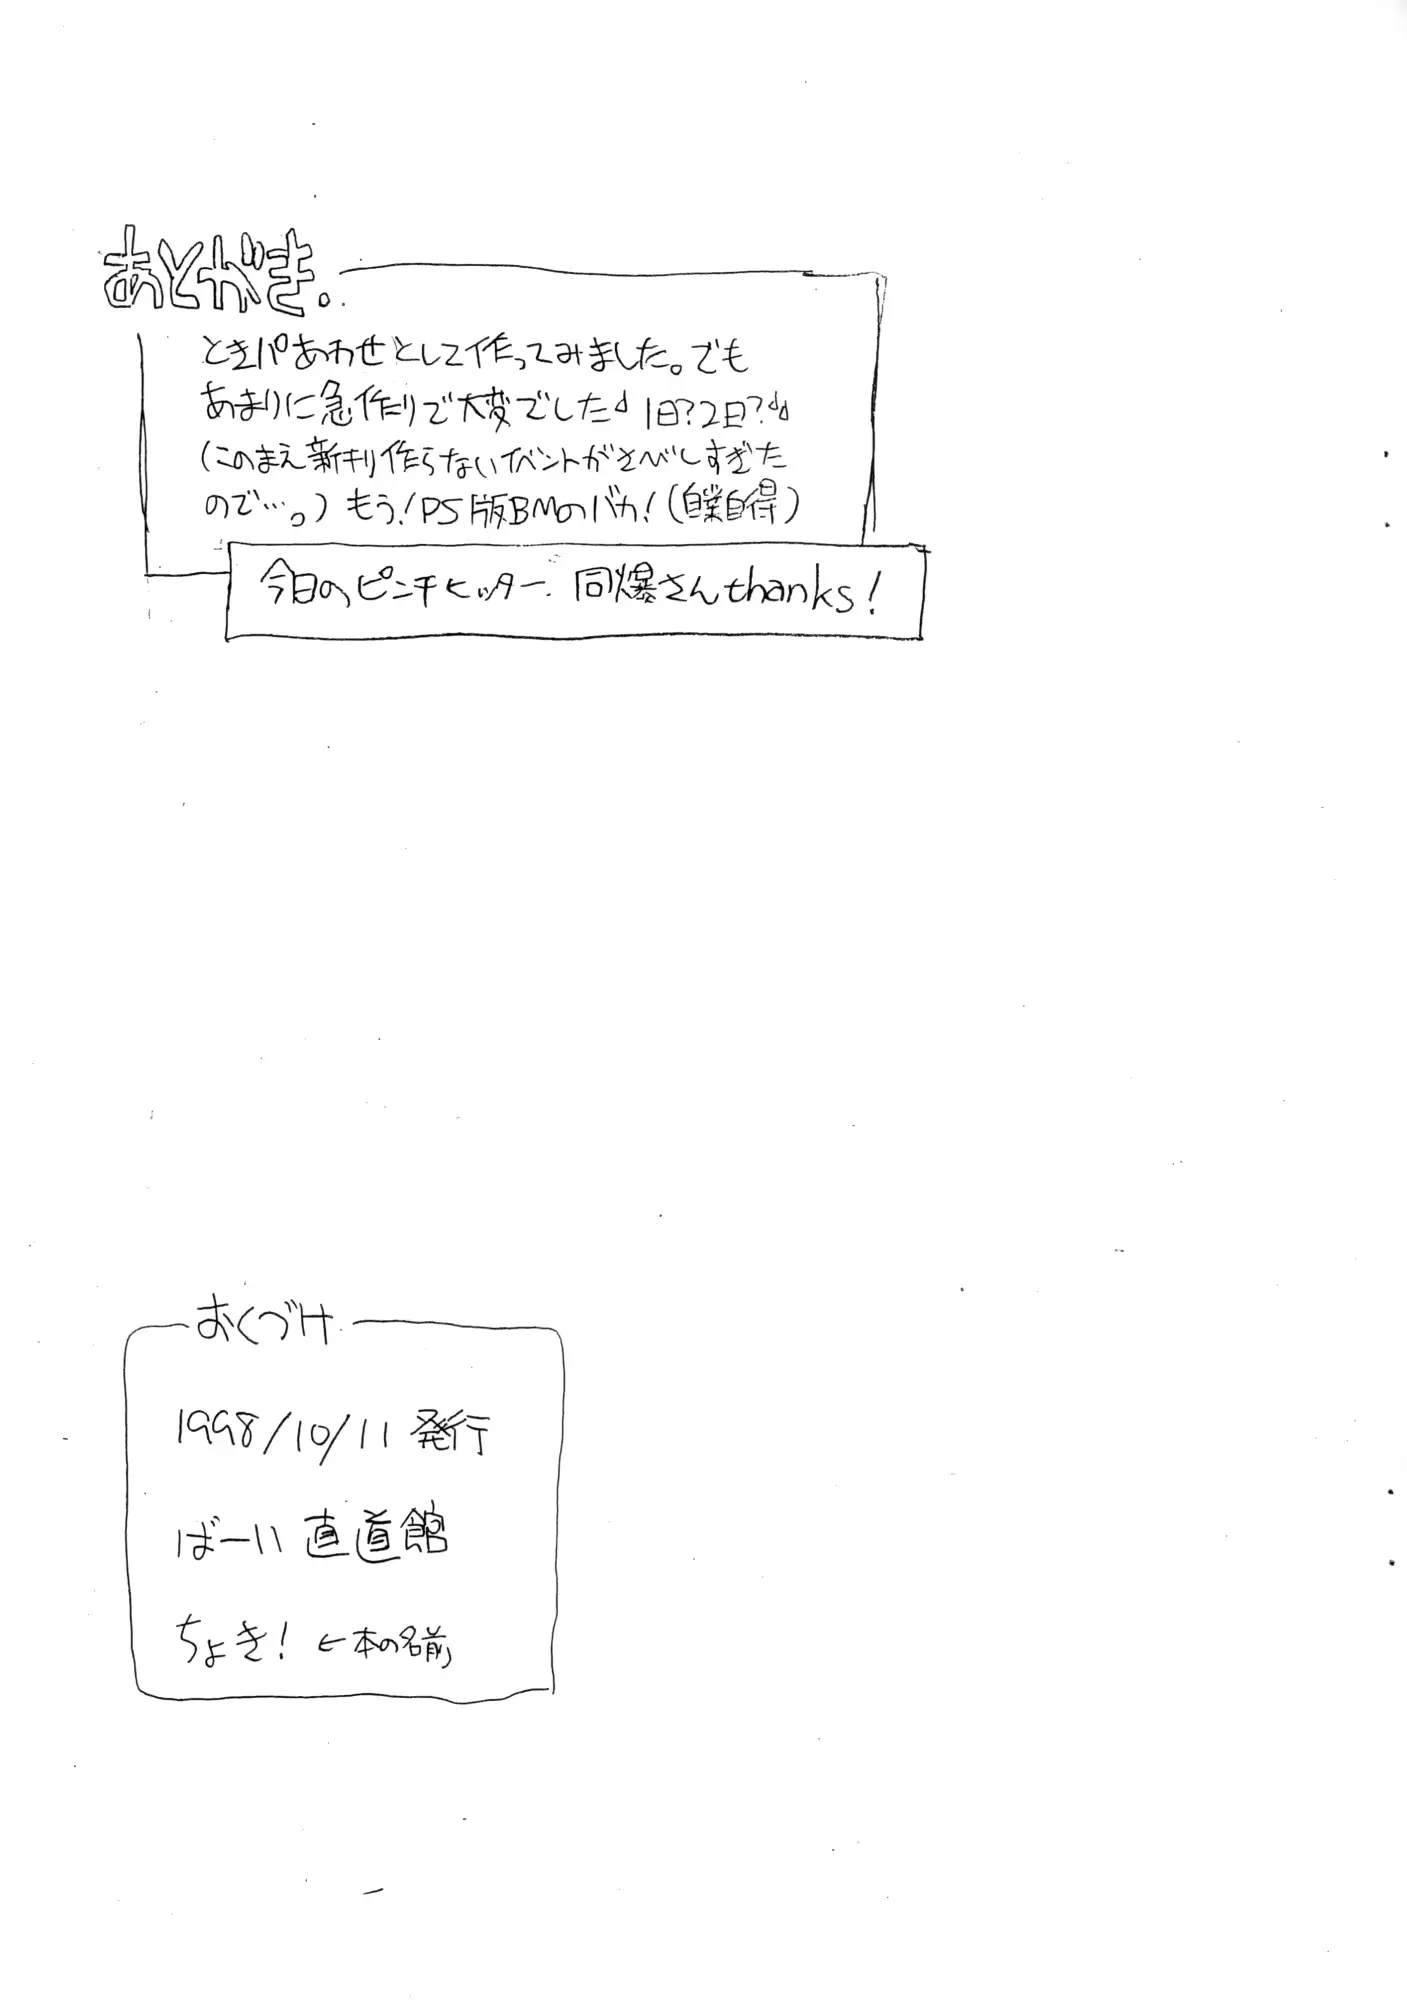 あとがき。
ときパあわせとして作ってみました。でも
あまりに急作りで大変でした♩1日?2日?♩♩
(このまえ新刊作らないイベントがさべしすぎた
ので…。)もう!PS版BMのバカ!(自業自得)
今日のピンチヒッター. 同爆さんthanks!
おくづけ
1998/10/11 発行
ばーい 直道館
ちょき! ←本の名前